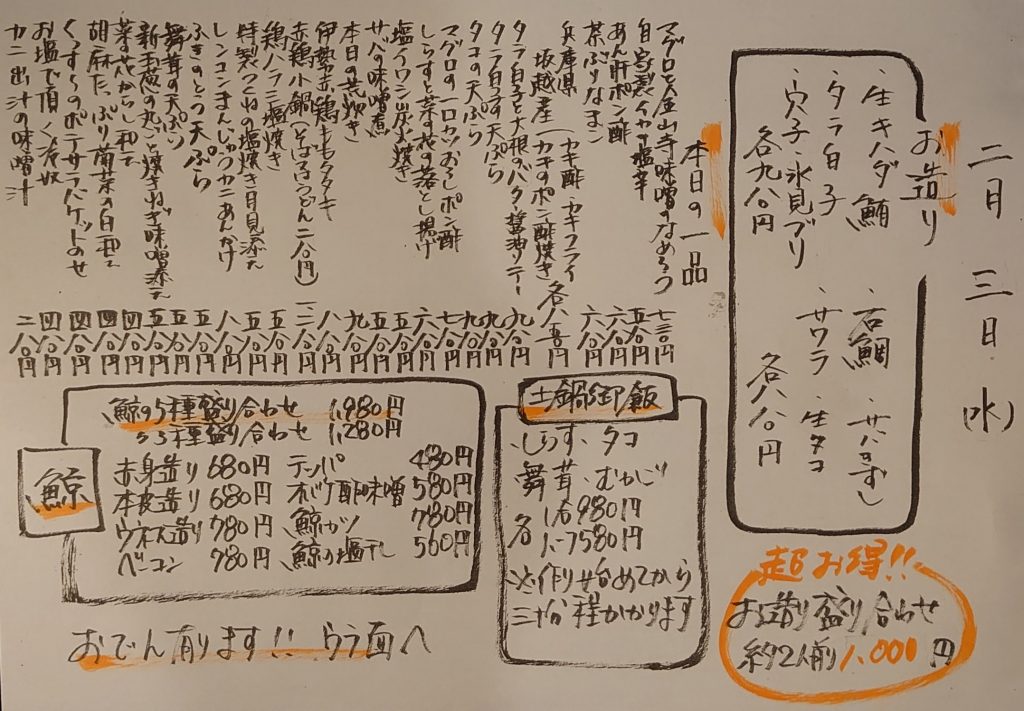 二月三日(水)
お造り
・生キハダ鮪
・タラ白子
・穴子・氷見ブリ
各九八〇円
・石鯛・サバきずし
・サワラ・生タコ
各八八〇円
本日の一品
マグロと金山寺味噌のなめろう 七三〇円
自家製イカの塩辛 五八〇円
あん肝ポン酢 六八〇円
茶ぶりなまこ 六八〇円
兵庫県坂越産(カキ酢・カキフライ・カキのポン酢焼き 各八五〇円
タラ白子と大根のバタ醤油ソテー 九八〇円
タラ白子天ぷら 九八〇円
タコの天ぷら 九八〇円
マグロの一口カツおろしポン酢 七八〇円
しらすと菜の花の落とし揚げ 六八〇円
塩イワシ炭火焼き 五八〇円
サバの味噌煮 五八〇円
本日の荒炊き 九八〇円
伊勢赤鶏ももタタキ 八八〇円
赤鶏小鍋(そばorうどん二八〇円)
鶏ハラミ塩焼き 五八〇円
特製つくねの塩焼き月見添え 五八〇円
レンコンまんじゅうカニあんかけ 八八〇円
ふきのとう天ぷら 五八〇円
舞茸の天ぷら 五八〇円
新玉葱の丸ごと焼きねぎ味噌添え 五八〇円
菜の花からし和え 四八〇円
胡麻たっぷり菊菜の白和え 四八〇円
くんせいのポテサラバケットのせ 四八〇円
お塩で頂く冷奴 四八〇円
カニ出汁の味噌汁 二八〇円
土鍋御飯
・しらす・タコ
舞茸・むかご
各
※作り始めてから
三十分程かかります
鯨
鯨の5種盛り合わせ 1,980円
〃3種盛り合わせ 1,280円
赤身造り 680円
本皮造り 680円
ウネス造り 780円
ベーコン 780円
テッパ 480円
オバケ酢味噌 580円
鯨カツ 780円
鯨の塩干し 560円
おでん有ります!!ウラ面へ
超お得!!
お造り盛り合わせ
約2人前1,000円